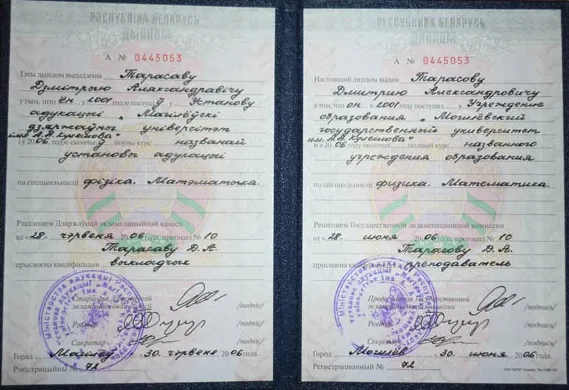 РЭСПУБЛІКА БЕЛАРУСЬ
ДЫПЛОМ
А № 0445053
Гэты дыплом выдадзены Тарасаву
Дзмітрыю Аляксандравічу
у тым, што ён у 2001 годзе паступіў у Установу
адукацыі „Магілёўскі
дзяржаўны універсітэт
імя А.А. Куляшова"
і у 2006 годзе скончыў поўны курс названай
установы адукацыі
па спецыяльнасці фізіка. Матэматыка.
Рашэннем Дзяржаўнай экзаменацыйнай камісіі
ад 28 чэрвеня 2006 года, пратакол № 10
Тарасаву Д.А.
прысвоена кваліфікацыя
выкладчык
Старшыня Дзяржаўнай
экзаменацыйнай камісіі /подпіс/
/подпіс/
Сакратар /подпіс/
Горад Магілёў 30 чэрвеня 2006 года.
Рэгістрацыйны № 72
РЕСПУБЛИКА БЕЛАРУСЬ
ДИПЛОМ
А № 0445053
Настоящий диплом выдан Тарасову
Дмитрию Александровичу
в том, что он в 2001 году поступил в Учреждение
образования „Могилёвский
государственный университет
им. А.А. Кулешова"
и в 2006 году окончил полный курс названного
учреждения образования
по специальности физика. Математика.
Решением Государственной экзаменационной комиссии
от 28 июня 2006 года, протокол № 10
Тарасову Д.А.
присвоена квалификация
преподаватель
Председатель Государственной
экзаменационной комиссии /подпись/
/подпись/
Секретарь /подпись/
Город Могилёв 30 июня 2006 года.
Регистрационный № 72